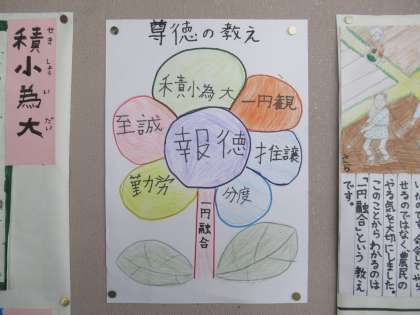 せき しょう い だい
積小為大
尊徳の教え
積小為大
一円観
至誠
報徳
推譲
勤労
分度
一円融合
せるのではなく農民の
やる気を大切にしました。
このことからわかるのは
「一円融合」という教え
です。